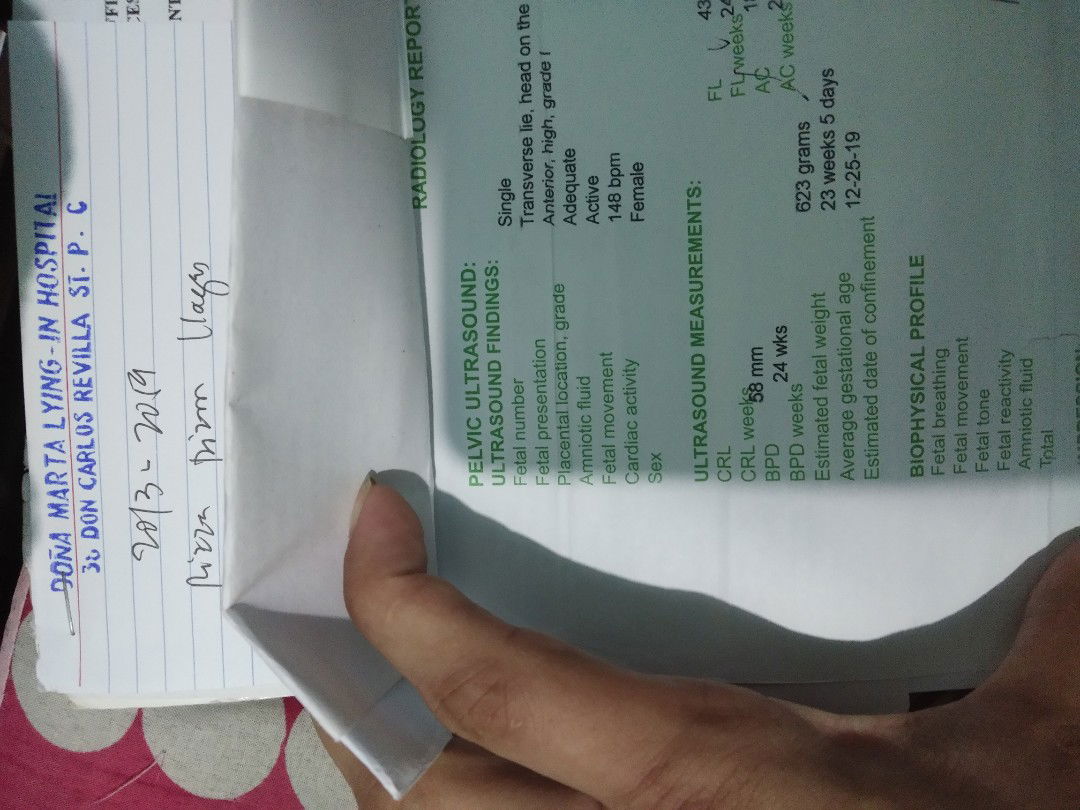 DOÑA MARTA LYING-IN HOSPITAL
32 DON CARLOS REVILLA ST. P. C
2013 - 2019
RADIOLOGY REPOR
PELVIC ULTRASOUND:
ULTRASOUND FINDINGS:
Fetal number Single
Fetal presentation Transverse lie, head on the
Placental location, grade Anterior, high, grade I
Amniotic fluid Adequate
Fetal movement Active
Cardiac activity 148 bpm
Sex Female
ULTRASOUND MEASUREMENTS:
CRL FL 43
CRL weeks FL weeks 24
BPD 58 mm AC
BPD weeks 24 wks AC weeks
Estimated fetal weight 623 grams
Average gestational age 23 weeks 5 days
Estimated date of confinement 12-25-19
BIOPHYSICAL PROFILE
Fetal breathing
Fetal movement
Fetal tone
Fetal reactivity
Amniotic fluid
Total